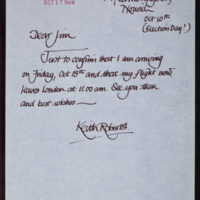 OCT 17
Norwich
Oct 10th
(Election Day!)
Dear Jim
Just to confirm that I am arriving
on Friday, Oct 18th and that my flight now
leaves London at 11.00 am. See you then
and best wishes
Keith Roberts